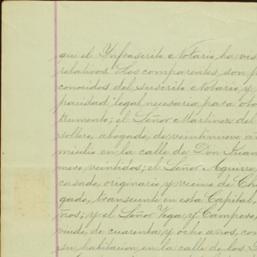 que el Infrascrito Notario ha vis
relativos. Los comparentes son p
conocidos del suscrito Notario, y
pacidad legal necesaria para oto
trumento; el Señor Martinez del
soltero, abogado, de veintinueve a
micilio en la calle de Don Juan
mero veintidos; el Señor Aguirre,
casado, originario y vecino de Ch
gado, transeunte en esta Capital,
ños; y el Señor Vega y Campero,
viudo, de cuarenta y ocho años, con
su habitacion en la calle de los